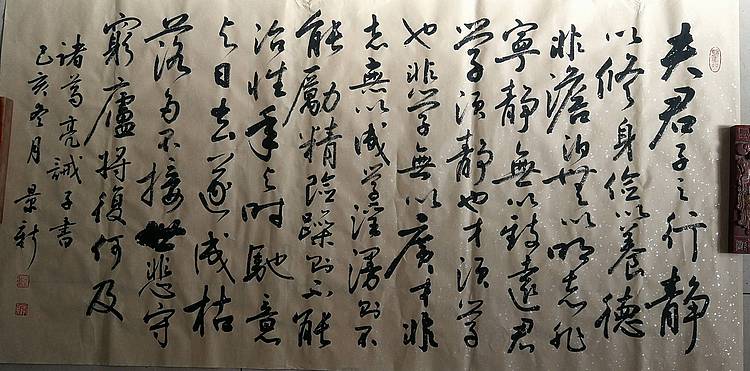 夫君子之行静
以脩身儉以養德
非澹泊無以明志非
寧静無以致遠君
学須静也才須学
也非学無以廣才非
志無以成学淫漫則不
能勵精險躁則不能
冶性年与时馳意
与日去遂成枯
落多不接世悲守
窮廬將復何及
諸葛亮誡子書
己亥冬月 景新